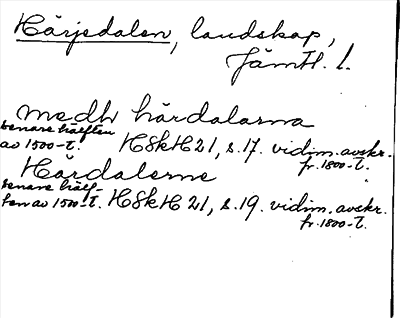 Härjedalen, landskap,
Jämtl. l.
medh härdalarna
senare hälften
av 1500-t. HSkH 21, s. 17. vidim. avskr.
fr. 1800-t.
Härdalerne
senare hälf-
ten av 1500-t. HSkH 21, s. 19. vidim. avskr.
fr. 1800-t.